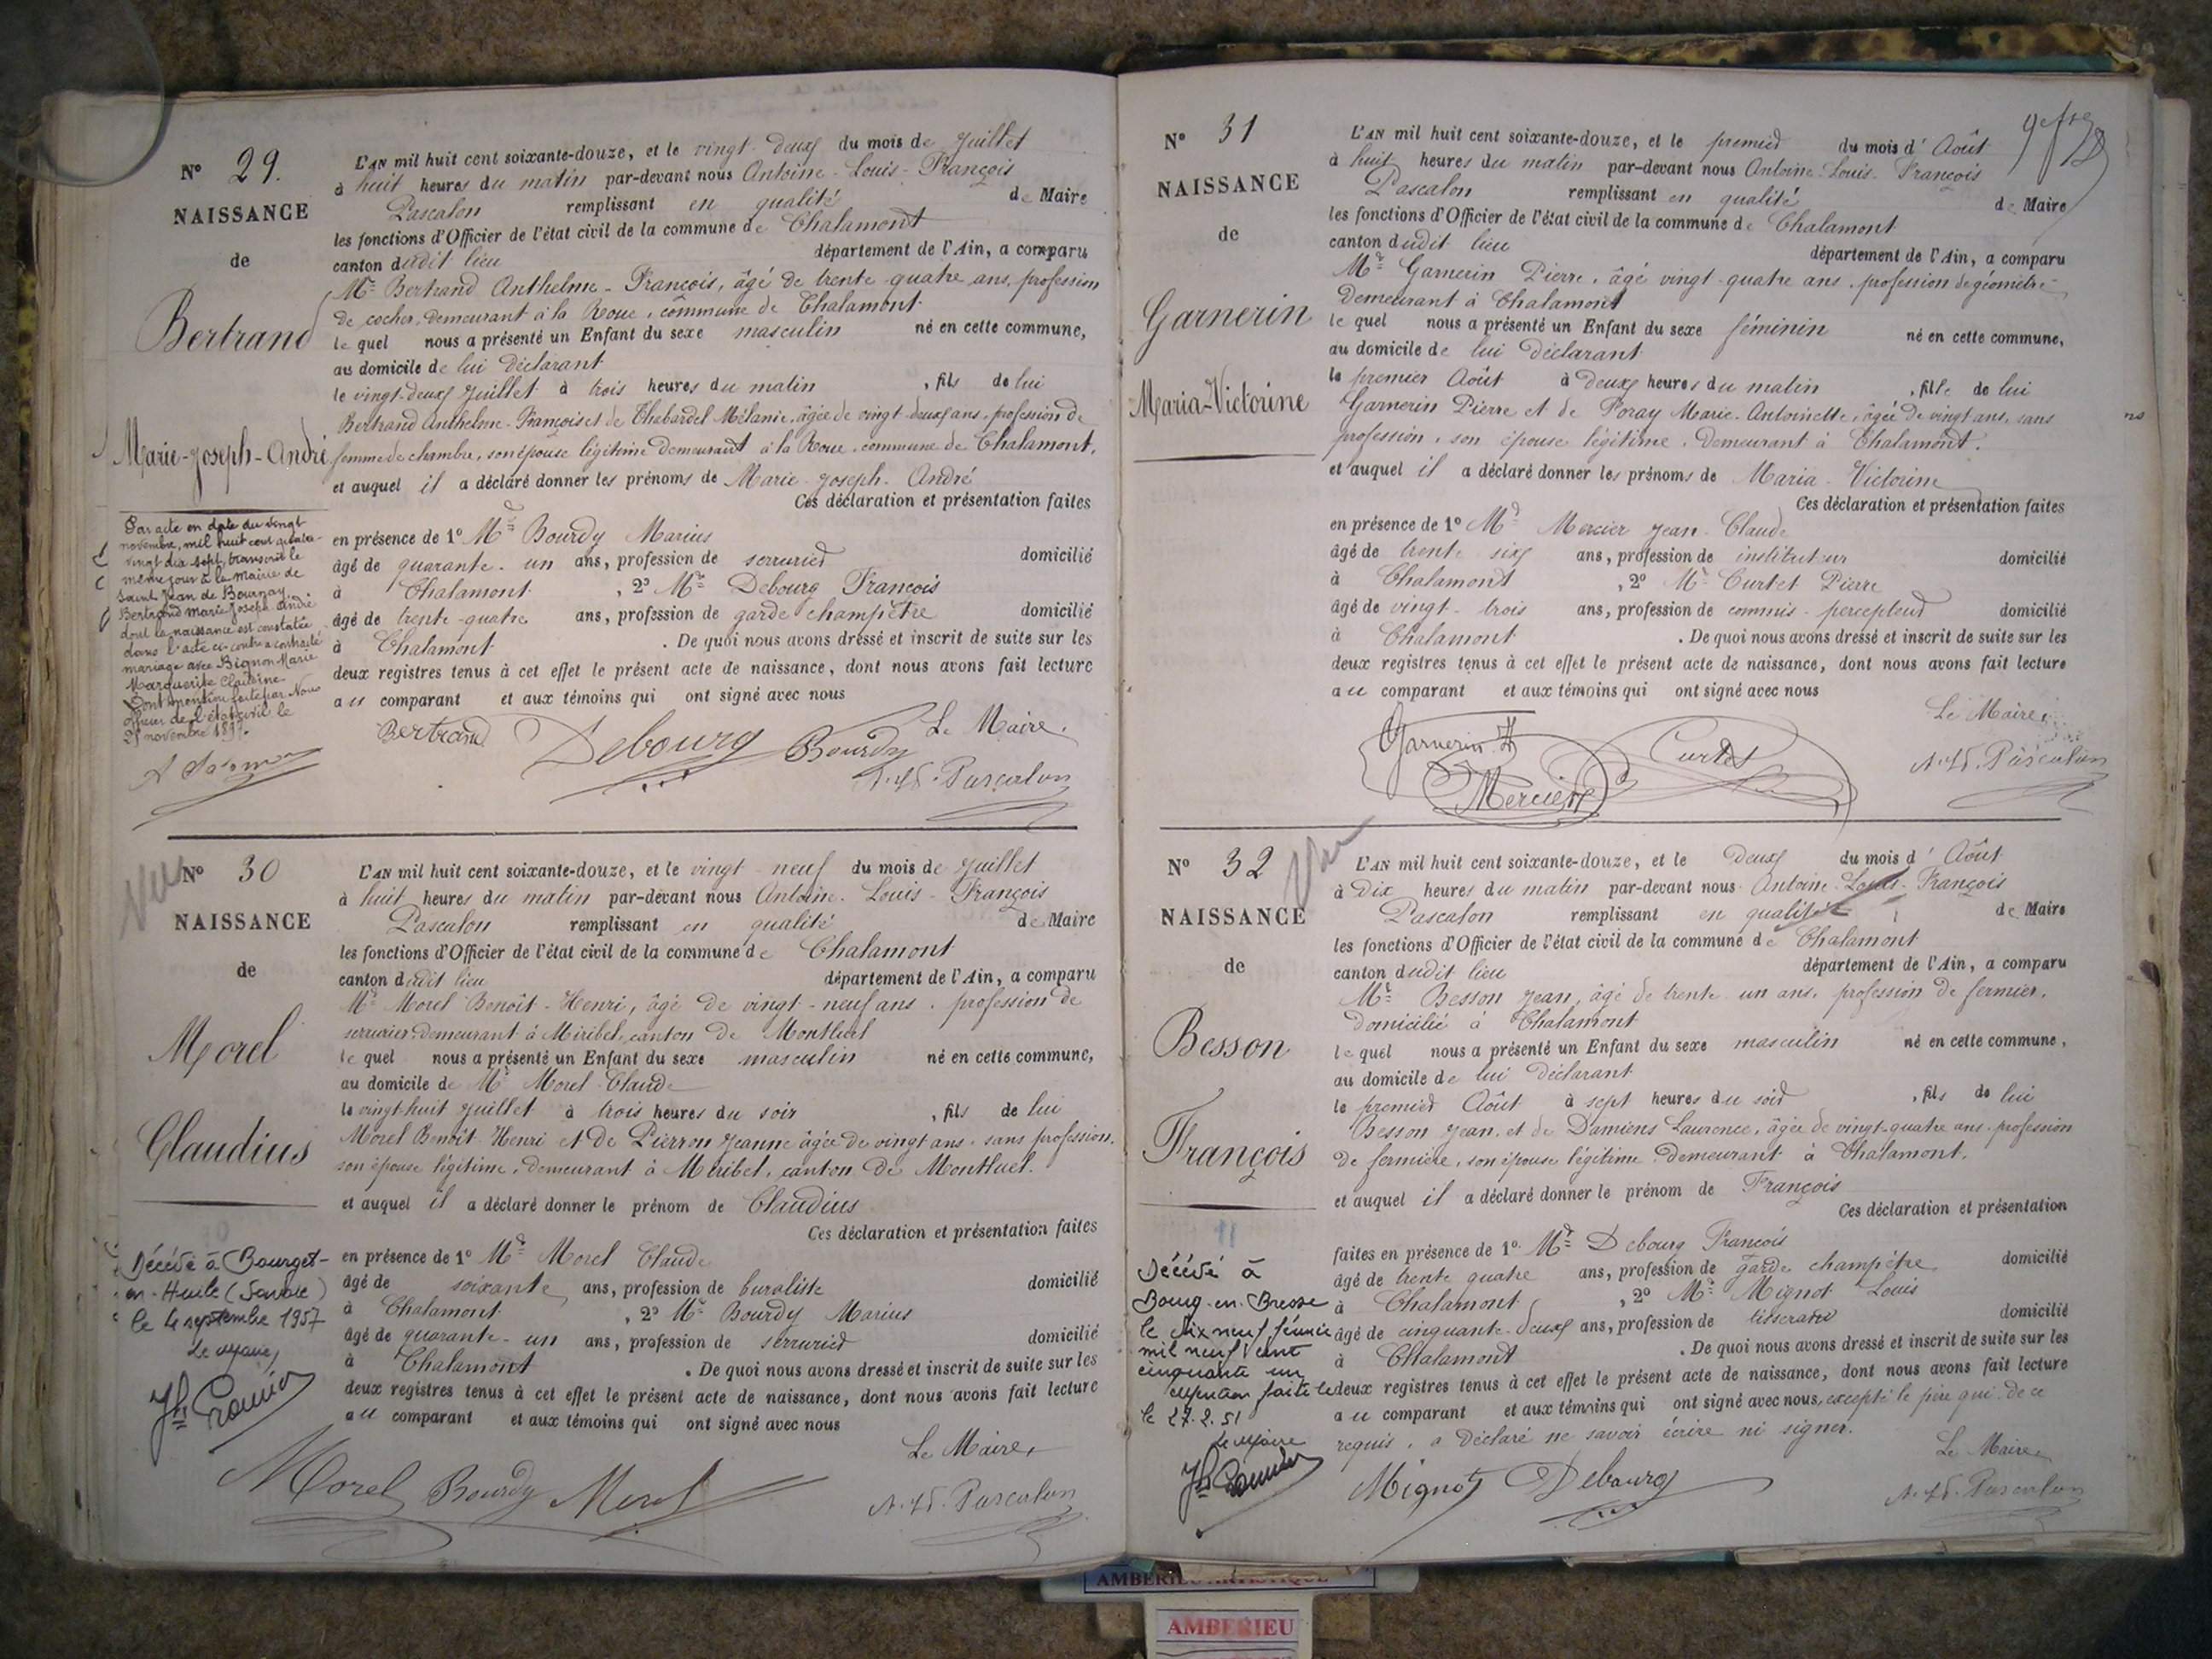 N° 29.
NAISSANCE
de
Bertrand
Marie-Joseph-André
Par acte en date du vingt
novembre, mil huit cent quatre-
vingt dix sept, transcrit le
même jour à la mairie de
Saint Jean de Bournay,
Bertrand Marie Joseph André
dont la naissance est constatée
dans l'acte ci-contre a contracté
mariage avec Bignon Marie
Marguerite Claudine
Dont mention faite par Nous
officier de l'état civil le
novembre 1897.
L'AN mil huit cent soixante-douze, et le vingt-deux du mois de Juillet
à huit heures du matin par-devant nous Antoine-Louis-François
Pascalon remplissant en qualité de Maire
les fonctions d'Officier de l'état civil de la commune de Chalamont
canton dudit lieu département de l'Ain, a comparu
Mr Bertrand Anthelme-François, âgé de trente-quatre ans, profession
de cocher, demeurant à la Roue, commune de Chalamont
lequel nous a présenté un Enfant du sexe masculin né en cette commune,
au domicile de lui déclarant
le vingt-deux Juillet à trois heures du matin, fils de lui
Bertrand Anthelme-François et de Chabardel Mélanie, âgée de vingt-deux ans, profession de
femme de chambre, son épouse légitime demeurant à la Roue, commune de Chalamont,
et auquel il a déclaré donner les prénoms de Marie-Joseph-André
Ces déclaration et présentation faites
en présence de 1° Mr Bourdy Marius
âgé de quarante-un ans, profession de serrurier domicilié
à Chalamont, 2° Mr Debourg François
âgé de trente-quatre ans, profession de garde champêtre domicilié
à Chalamont. De quoi nous avons dressé et inscrit de suite sur les
deux registres tenus à cet effet le présent acte de naissance, dont nous avons fait lecture
au comparant et aux témoins qui ont signé avec nous
Bertrand Debourg Bourdy Le Maire.
A. Ls. Pascalon
Vu
N° 30
NAISSANCE
de
Morel
Claudius
Décédé à Bourget-
en-Huile (Savoie)
le 4 septembre 1957
Le Maire,
L'AN mil huit cent soixante-douze, et le vingt-neuf du mois de Juillet
à huit heures du matin par-devant nous Antoine-Louis-François
Pascalon remplissant en qualité de Maire
les fonctions d'Officier de l'état civil de la commune de Chalamont
canton dudit lieu département de l'Ain, a comparu
Mr Morel Benoît-Henri, âgé de vingt-neuf ans, profession de
serrurier demeurant à Miribel, canton de Montluel
lequel nous a présenté un Enfant du sexe masculin né en cette commune,
au domicile de Mr Morel Claude
le vingt-huit Juillet à trois heures du soir, fils de lui
Morel Benoît-Henri et de Pierron Jeanne âgée de vingt ans, sans profession,
son épouse légitime, demeurant à Miribel, canton de Montluel.
et auquel il a déclaré donner le prénom de Claudius
Ces déclaration et présentation faites
en présence de 1° Mr Morel Claude
âgé de soixante ans, profession de buraliste domicilié
à Chalamont, 2° Mr Bourdy Marius
âgé de quarante-un ans, profession de serrurier domicilié
à Chalamont. De quoi nous avons dressé et inscrit de suite sur les
deux registres tenus à cet effet le présent acte de naissance, dont nous avons fait lecture
au comparant et aux témoins qui ont signé avec nous
Le Maire,
Morel Bourdy Morel A. Ls. Pascalon
N° 31
NAISSANCE
de
Garnerin
Maria-Victorine
L'AN mil huit cent soixante-douze, et le premier du mois d'Août
à huit heures du matin par-devant nous Antoine-Louis-François
Pascalon remplissant en qualité de Maire
les fonctions d'Officier de l'état civil de la commune de Chalamont
canton dudit lieu département de l'Ain, a comparu
Mr Garnerin Pierre, âgé vingt-quatre ans, profession de géomètre
Demeurant à Chalamont
lequel nous a présenté un Enfant du sexe féminin né en cette commune,
au domicile de lui déclarant
le premier Août à deux heures du matin, fille de lui
Garnerin Pierre et de Poray Marie-Antoinette, âgée de vingt ans, sans
profession, son épouse légitime, Demeurant à Chalamont.
et auquel il a déclaré donner les prénoms de Maria-Victorine
Ces déclaration et présentation faites
en présence de 1° Mr Mercier Jean-Claude
âgé de trente-six ans, profession de instituteur domicilié
à Chalamont, 2° Mr Curtet Pierre
âgé de vingt-trois ans, profession de commis-percepteur domicilié
à Chalamont. De quoi nous avons dressé et inscrit de suite sur les
deux registres tenus à cet effet le présent acte de naissance, dont nous avons fait lecture
au comparant et aux témoins qui ont signé avec nous
Le Maire,
Garnerin Curtet
Mercier A. Ls. Pascalon
N° 32
Vu
NAISSANCE
de
Besson
François
Décédé à
Bourg-en-Bresse
le dix neuf février
mil neuf cent
cinquante un
mention faite
le 27.2.51
Le Maire
L'AN mil huit cent soixante-douze, et le deux du mois d'Août
à dix heures du matin par-devant nous Antoine-Louis-François
Pascalon remplissant en qualité de Maire
les fonctions d'Officier de l'état civil de la commune de Chalamont
canton dudit lieu département de l'Ain, a comparu
Mr Besson Jean, âgé de trente-un ans, profession de fermier,
domicilié à Chalamont
lequel nous a présenté un Enfant du sexe masculin né en cette commune,
au domicile de lui déclarant
le premier Août à sept heures du soir, fils de lui
Besson Jean, et de Damiens Laurence, âgée de vingt-quatre ans, profession
de fermière, son épouse légitime Demeurant à Chalamont.
et auquel il a déclaré donner le prénom de François
Ces déclaration et présentation
faites en présence de 1° Mr Debourg François
âgé de trente quatre ans, profession de garde champêtre domicilié
à Chalamont, 2° Mr Mignot Louis
âgé de cinquante-deux ans, profession de tisserand domicilié
à Chalamont. De quoi nous avons dressé et inscrit de suite sur les
deux registres tenus à cet effet le présent acte de naissance, dont nous avons fait lecture
au comparant et aux témoins qui ont signé avec nous, excepté le père qui de ce
requis, a déclaré ne savoir écrire ni signer.
Le Maire
Mignot Debourg A. Ls. Pascalon
AMBERIEU ARTISTIQUE
AMBERIEU